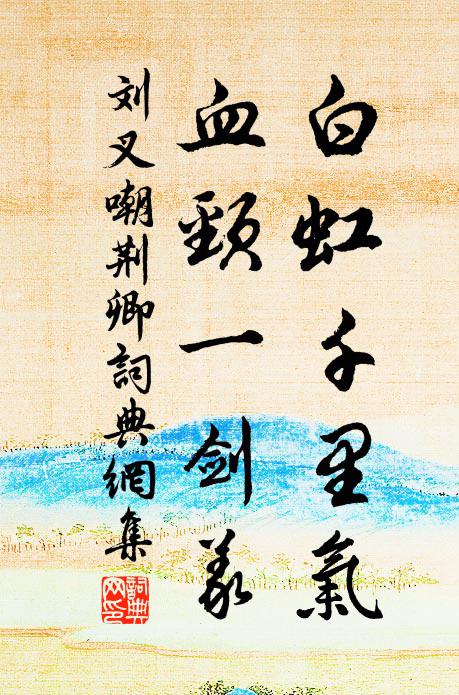 白虹千里氣
血頸一劍義
刘叉嘲荆卿詞典網集
詞典網印